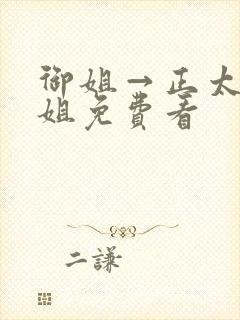 御姐→正太
姐免費看
二謙